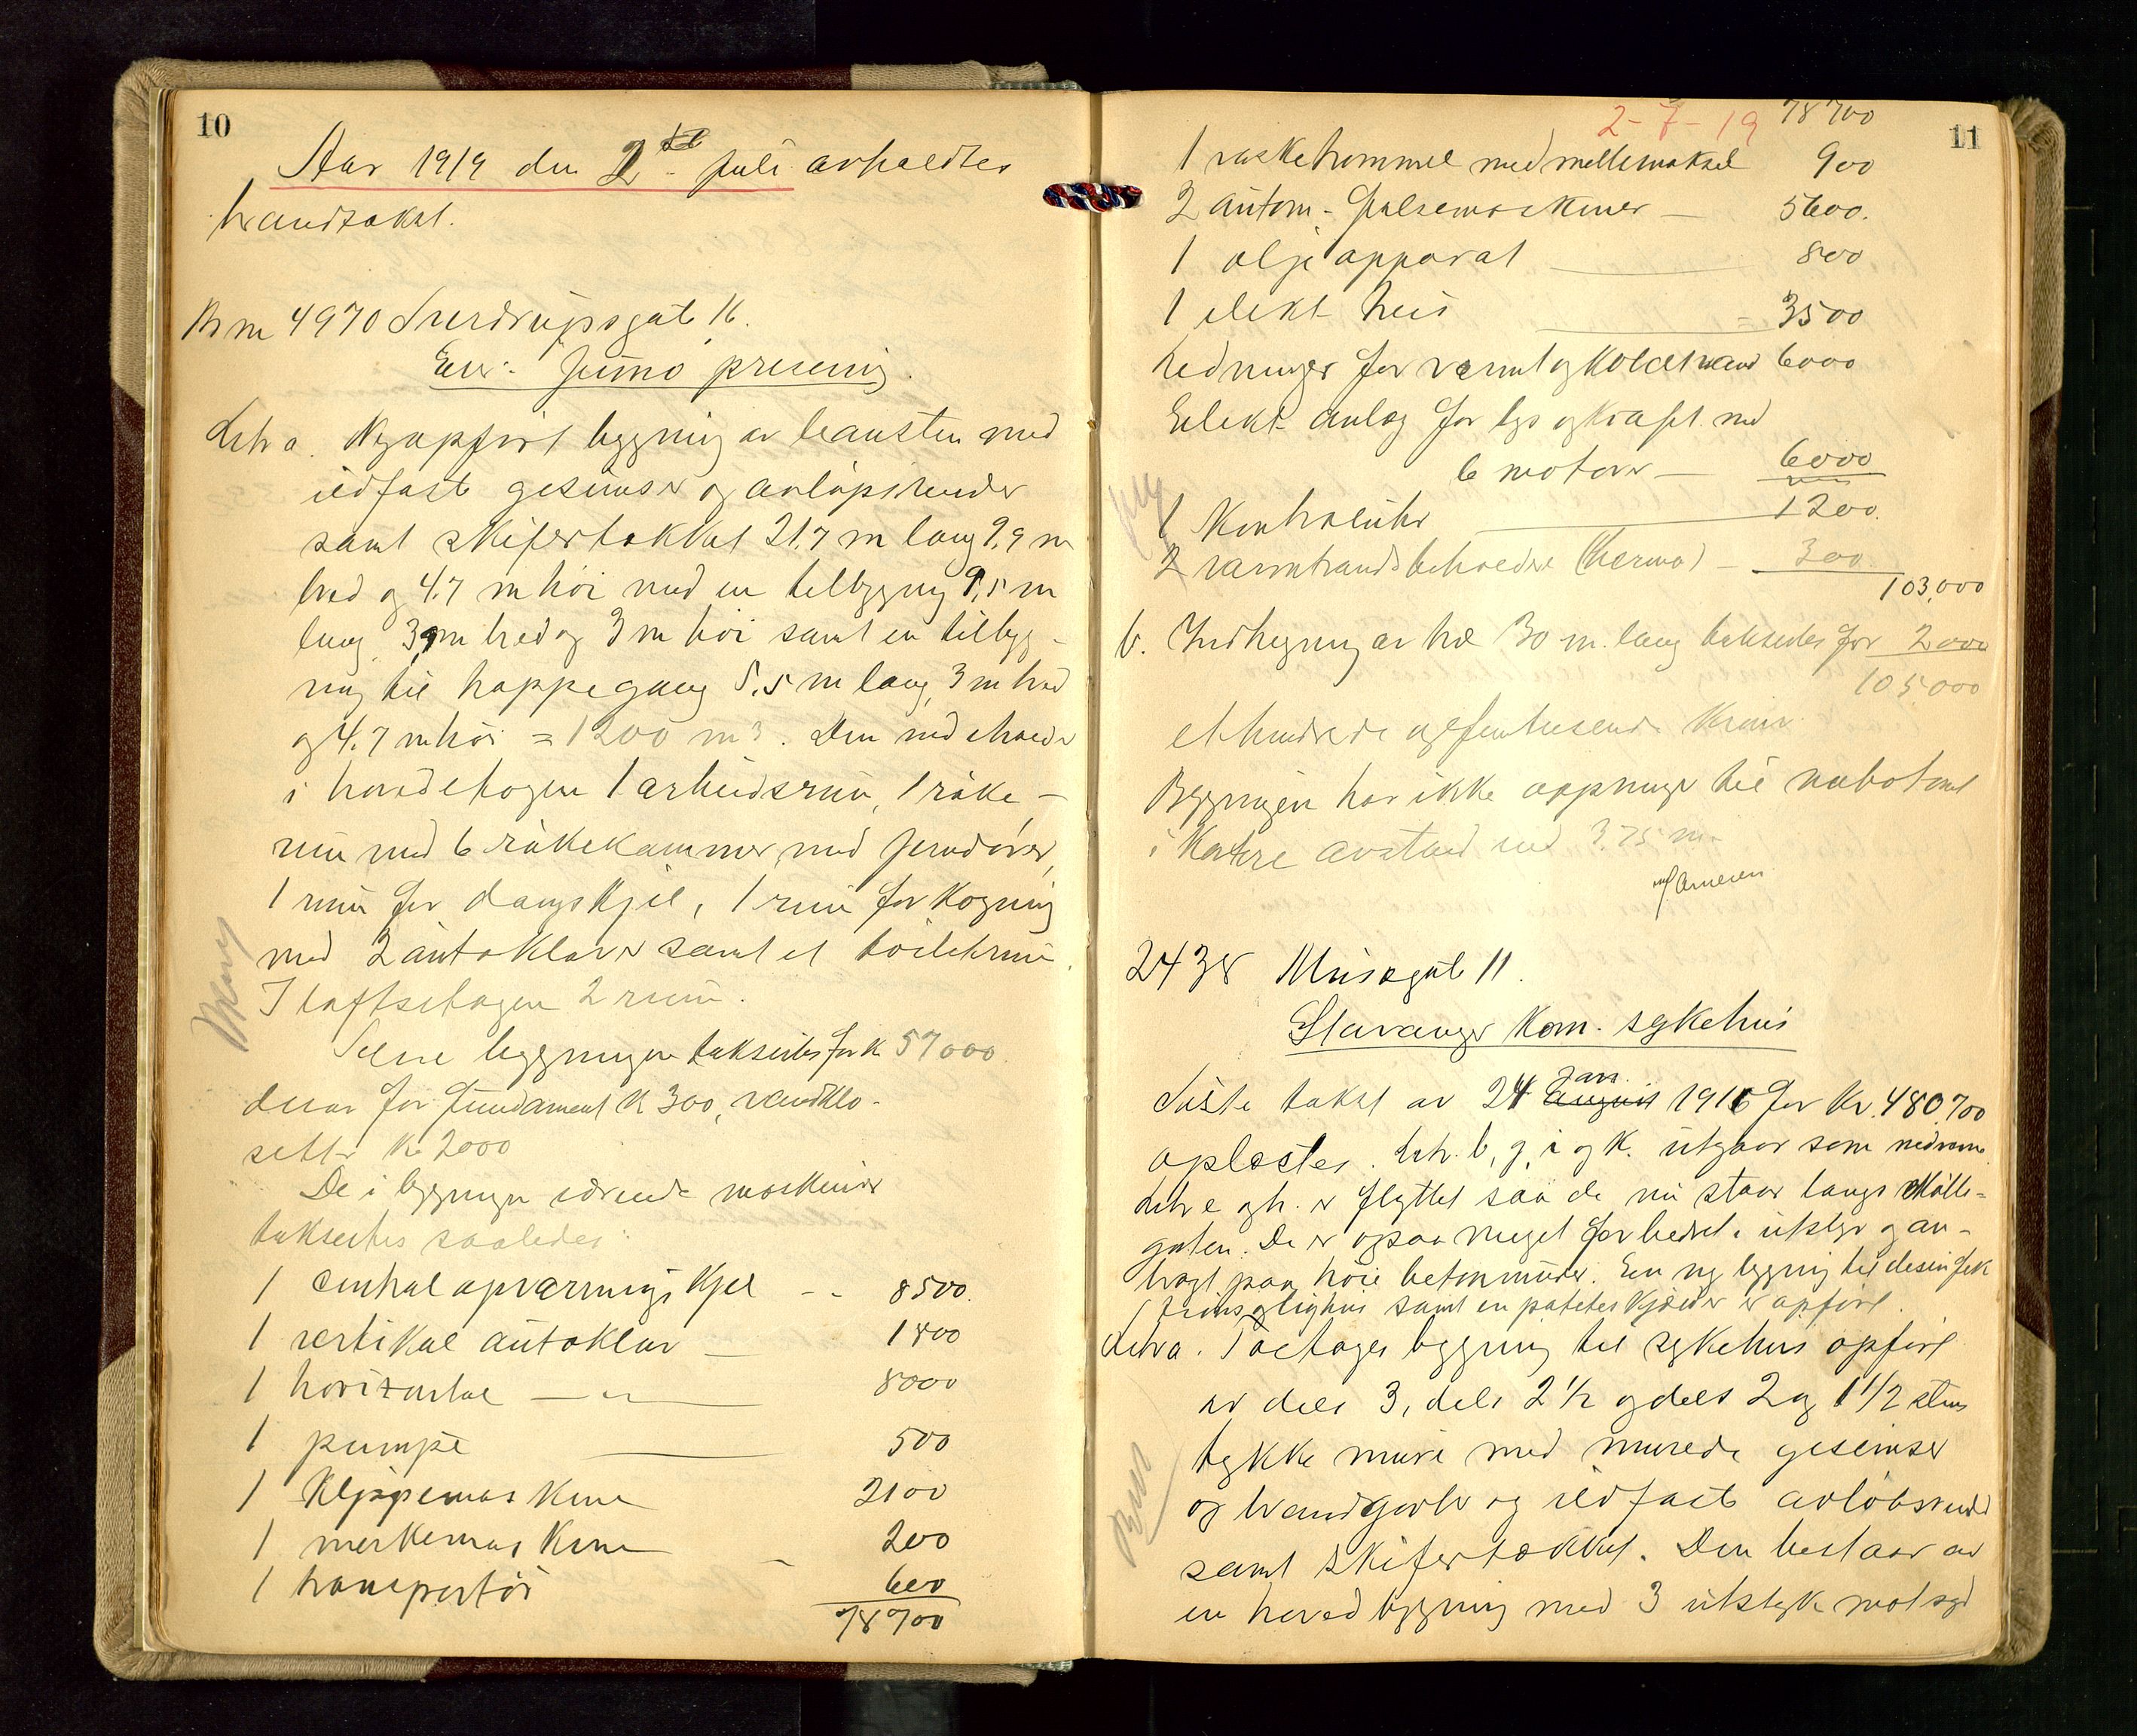 10
Aar 1919 den 2den juli avholdtes
brandtakst.
Br nr 4970 Sverdrupsgate 16.
Eier: Jumo preserving.
Litr a. Nyopført bygning av betongsten med
ildfast gesimser og avløpsrender
samt skifertækket 21.7 m lang 9,9 m
bred og 4.7 m høi med en tilbygning 9,5 m
lang, 3,9 m bred og 3 m høi samt en tilbyg-
ning til trappegang 5.5 m lang, 3 m bred
og 4.7 m høi = 1200 m3. Den indeholder
i hovedetagen 1 arbeidsrum, 1 røke-
rum med 6 røkekammer med jerndører,
1 rum for dampkjel, 1 rum for kogning
med 2 autoklaver samt et toiletrum.
I loftsetagen 2 rum.
Selve bygningen takseres for kr 57000
derav for fundament kr 300, vandklo-
setter kr 2000
De i bygningen værende maskiner
takseres saaledes:
1 centralopvarmings kjel - - 8500.
1 vertikal autoklav — 1800
1 horizontal — " — 8000
1 pumpe — 500
1 Klippemaskine 2100
1 merkemaskine 200
1 transportør 600
78700
11
2-7-19 78700
1 vasketrommel med mellemaksel 900
2 autom. falsemaskiner — 5600.
1 olje apparat — 800
1 elekt heis — 3500
Ledninger for varmt og koldt vand 6000
Elekt anlæg for lys og kraft med
6 motorer — 6000
1 Kontrolur — 1200.
2 varmtvandsbeholdere (Thermo) — 300
103,000
b. Indhegning av træ 30 m. lang takseres for 2000
105,000
et hundrede og femtusende kroner
Bygningen har ikke aapninger til nabotomt
i kortere avstand end 3.75 m.
2438 Musegate 11.
Stavanger Kom. sykehus
Siste takst av 24 Jan. august 1916 for kr. 480,700
oplæstes. Litr. b, g, i og k. utgaar som nedrevne
Litr e og h. er flyttet saa de nu staar langs Mølle-
gaten. De er ogsaa meget forbedret i utstyr og an-
bragt paa høie betonmurer. En ny bygning til desinfek
tions og lighus samt en potetes kjælder er opført.
Litra a. To etages bygning til sykehus opført
av dels 3, dels 2½ og dels 2 og 1½ stens
tykke mure med murede gesimser
og brandgavler og ildfast avløbsrender
samt skifertækket. Den bestaar av
en hovedbygning med 3 utstyk mot syd